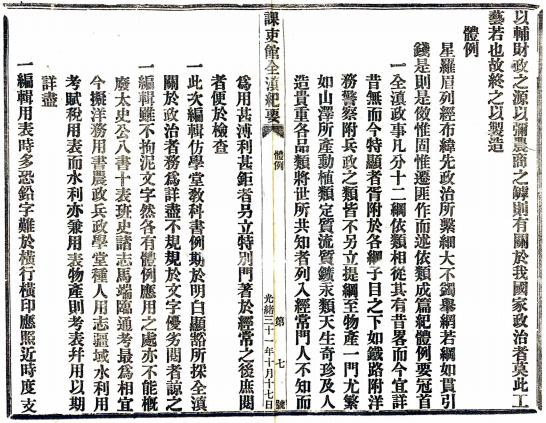 以輔財政之源以彌農商之罅則有關於我國家政治者莫此工
藝若也故終之以製造
體例
星羅眉列經布緯先政治所繫細大不蠲舉網若綱如貫引
錢是則是傚惟固惟遷匪作而述依類成篇紀體例要冠首
一全滇政事凡分十二綱依類相從其有昔略而今宜詳
昔無而今特顯者胥附於各綱子目之下如鐵路附洋
務警察附兵政之類皆不另立提綱至物產一門尤繁
如山澤所產動植類定質流質鑛汞類天生奇珍及人
造貴重各品類將世所共知者列入經常門人不知而
課吏館全滇紀要
體例
第七號
光緒三十一年十月十七日
爲用甚溥利甚鉅者另立特別門著於經常之後庶閱
者便於檢查
一此次編輯仿學堂教科書例期於明白顯豁所採全滇
關於政治者務爲詳盡不規規於文字優劣閱者諒之
一編輯雖不拘泥文字然各有體例應用之處亦不能槪
廢太史公八書十表班史諸志馬端臨通考最爲相宜
今擬洋務用書農政兵政學堂種人用志疆域水利用
考賦稅用表而水利亦兼用表物產則考表幷用以期
詳盡
一編輯用表時多恐鉛字難於橫行橫印應照近時度支